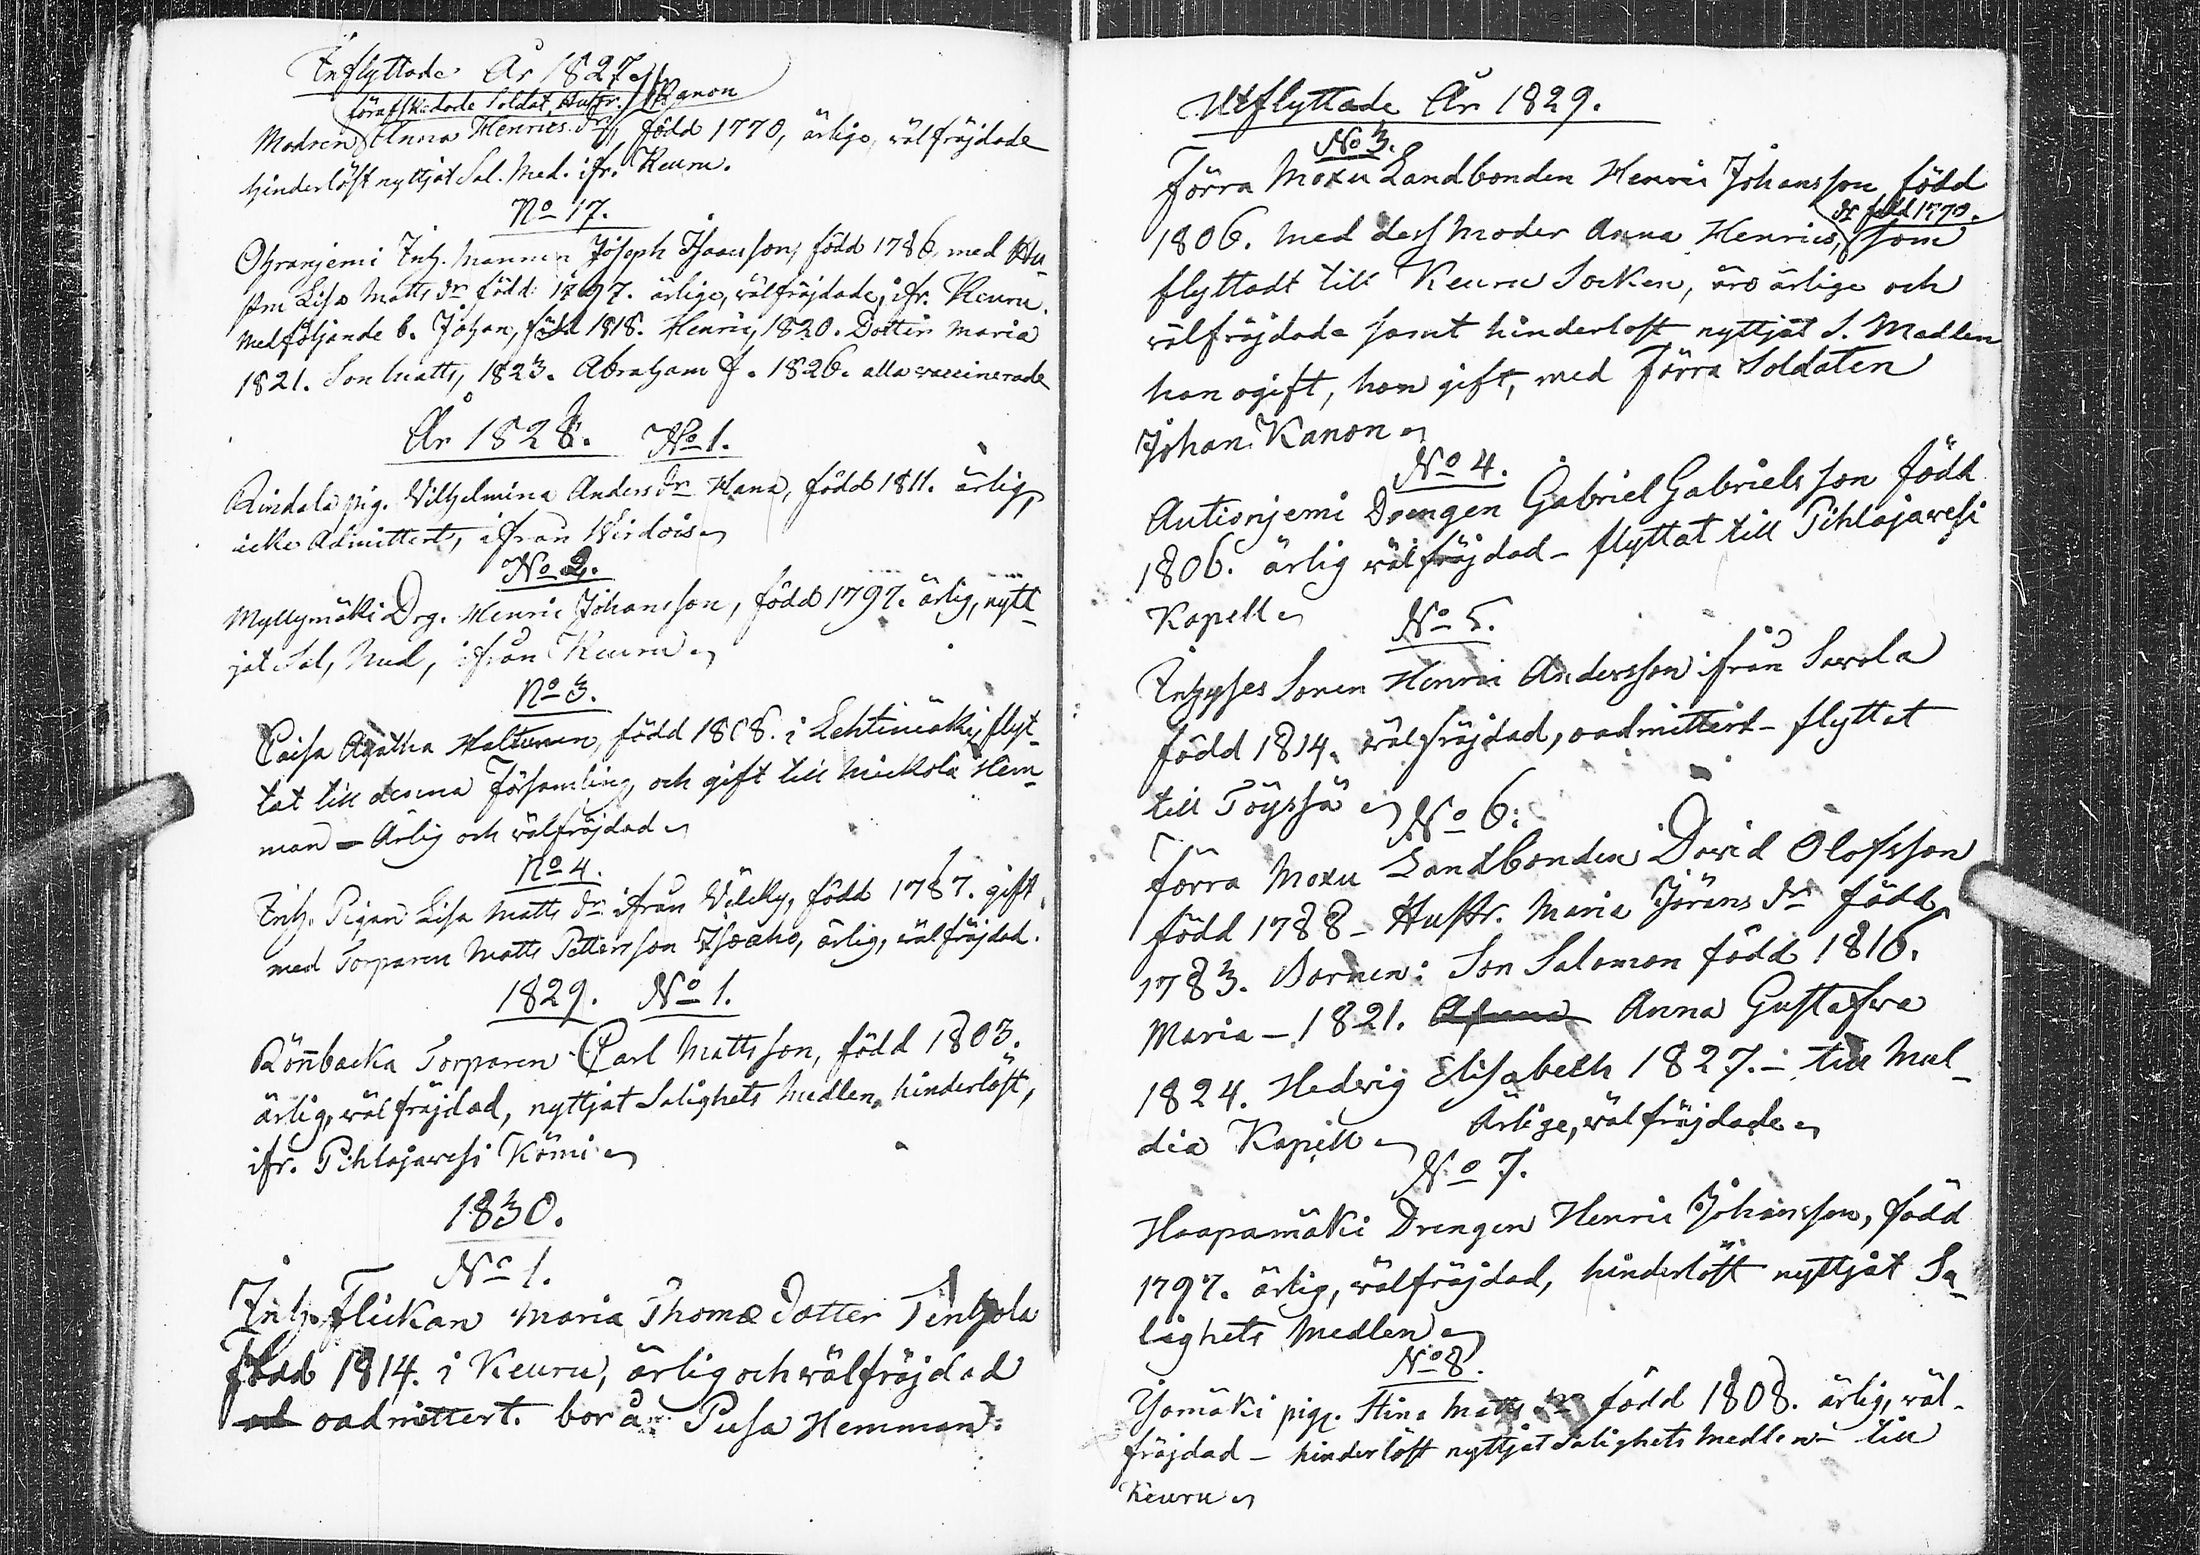 Inflyttade År 1827.
förafskedade Soldat, Hustr. Kanon
Modren Anna Henrics dr, född 1770, ärlige, välfräjdade
hinderlöst nyttjat Sal. Med. ifr. Keuru.
No 17.
Ohranjemi Inh. Mannen Joseph Isaacsson, född 1786, med Hu-
strn Lisa Matts dr född 1797. ärlige, välfräjdade, ifr. Keuru.
Medföljande b. Johan, född 1818. Henric, 1820. Dotter Maria
1821. Son Matts, 1823. Abraham f. 1826. alla vaccinerade
År 1828. No 1.
Rindala pig. Vilhelmina Anders dr Hana, född 1811. ärlig,
icke Admittert, ifrån Virdois
No 2.
Myllymäki Drg. Henric Johansson, född 1797. ärlig, nytt-
jat Sal, Med, ifrån Keuru
No 3.
Caisa Agatha Haltunen, född 1808. i Lehtimäki, flyt-
tat till denna Församling, och gift till Mickola Hem-
man – Ärlig och välfräjdad
No 4.
Inh. Pigan Lisa Matts dr ifrån, född 1787. gift
med Torparen Matts Pettersson Isoaho, ärlig, välfräjdad.
1829. No 1.
Rönbacka Torparen Carl Mattsson, född 1803.
ärlig, välfräjdad, nyttjat Salighets Medlen, hinderlöst,
ifr. Pihlajavesi Kömi
1830.
No 1.
Inh. Flickan Maria Thomæ Dotter Tenhola
född 1814. i Keuru, ärlig och välfräjdad
ad oadmittert. bor å Pusa Hemman.
Utflyttade År 1829.
No 3.
Förra Moxu Landbonden Henric Johansson född
dr född 1770.
1806. med dess Moder Anna Henrics, som
flyttadt till Keuru Socken, äro ärlige och
välfräjdade samt hinderlöst nyttjat S. Medlen
han ogift, hon gift, med Förra Soldaten
Johan Kanon
No 4.
Autionjemi Drengen Gabriel Gabrielsson född
1806. ärlig välfräjdad – flyttat till Pihlajavesi
Kapell
No 5.
Inhyses Sonen Henric Andersson ifrån Savola
född 1814. välfräjdad, oadmittert – flyttat
till Töyssä
No 6.
Förra Moxu Landbonden David Olofsson
född 1788 – Hustr. Maria Jörans dr född
1783. Barnen: Son Salomon född 1816.
Maria – 1821. Anna Gustafva
1824. Hedvig Elisabeth 1827. – till Mul-
dia Kapell Ärlige, välfräjdade
No 7.
Haapamäki Drengen Henric Johansson, född
1797. ärlig, välfräjdad, hinderlöst nyttjat Sa-
lighets Medlen
No 8.
Yömäki pig. Stina Matts dr född 1808. ärlig, väl-
fräjdad – hinderlöst nyttjat Salighets Medlen – till
Keuru